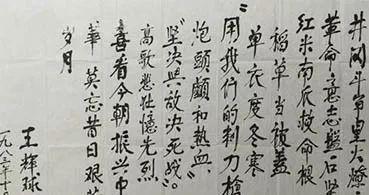 井冈山上星火燎
革命意志坚
红米南瓜救命根
稻草当被盖
单衣度冬寒
“用我们的刺刀枪
炮头颅和热血、
坚决与敌决死战”。
高歌悲壮忆先烈
喜看今朝振兴中
華 莫忘昔日艰
岁月
王輝球
一九八三年十